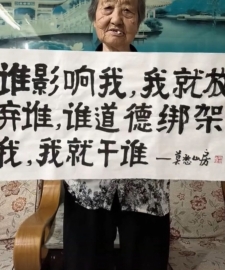 谁影响我,我就放
弃谁,谁道德绑架
我,我就干谁 — 莫愁山房